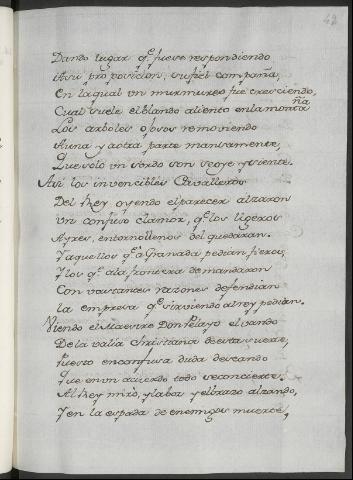 42
Dando lugar q.e fuese respondiendo
Asu proposicion, su fiel compaña,
En laqual un murmureo fue cresciendo,
Cual suele el blando aliento en la montaña
Los arboles ojosos removiendo
Auna y aotra parte mansamente,
Que solo un sordo son se oye, y siente.
Asi los invencibles Cavalleros
Del Rey oyendo el parecer alzaron
Un confuso clamor, q.e los ligeros
Ayres, entorno llenos del quedaron.
Y aquellos q.e a Granada pedian fieros,
Y los q.e ala frontera demandaron
Con vastantes razones defendian
la empresa q.e sirviendo al rey pedian.
Viendo el Maestre Don Pelayo el vando
De la valia Christiana de esta suerte,
Puesto en confusa duda deseando
Que en un acuerdo todo se concierte.
Al Rey miró, y la boz y el brazo alzando,
Y en la espada de enemigos muerte,